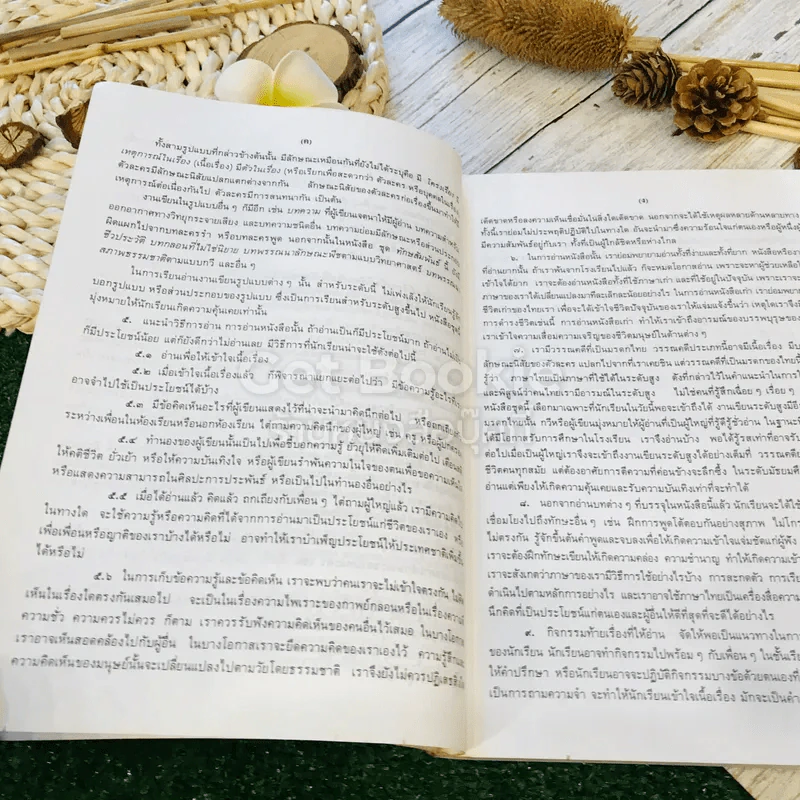 (ค)
ทั้งสามรูปแบบที่กล่าวข้างต้นนั้น มีลักษณะเหมือนกันที่ยังไม่ได้ระบุคือ มี โครงเรื่อง
เหตุการณ์ในเรื่อง (เนื้อเรื่อง) มีตัวในเรื่อง (หรือเรียกเพื่อสะดวกว่า ตัวละคร หรือบุคคลในเรื่อง)
ตัวละครมีลักษณะนิสัยแปลกแตกต่างจากกัน ลักษณะนิสัยของตัวละครก่อเรื่องขึ้นมาทำให้
เหตุการณ์ต่อเนื่องกันไป ตัวละครมีการสนทนากัน เป็นต้น
งานเขียนในรูปแบบอื่น ๆ ก็มีอีก เช่น บทความ ที่ผู้เขียนเจตนาให้มีผู้อ่าน บทความสำหรับ
ออกอากาศทางวิทยุกระจายเสียง และบทความชนิดอื่น บทความย่อมมีลักษณะหรือส่วนประกอบ
ผิดแผกไปจากบทละครรำ หรือบทละครพูด นอกจากนั้นในหนังสือ ชุด ทักษสัมพันธ์ นี้ ยังมี
ชีวประวัติ บทกลอนที่ไม่ใช่นิยาย บทพรรณนาลักษณะพืชตามแบบวิทยาศาสตร์ บทพรรณนา
สภาพธรรมชาติตามแบบกวี และอื่น ๆ
ในการเรียนอ่านงานเขียนรูปแบบต่าง ๆ นั้น สำหรับระดับนี้ ไม่เพ่งเล็งให้นักเรียนรู้จัก
บอกรูปแบบ หรือส่วนประกอบของรูปแบบ ซึ่งเป็นการเรียนสำหรับระดับสูงขึ้นไป หนังสือชุดนี้
มุ่งหมายให้นักเรียนเกิดความคุ้นเคยเท่านั้น
๕. แนะนำวิธีการอ่าน การอ่านหนังสือนั้น ถ้าอ่านเป็นก็มีประโยชน์มาก ถ้าอ่านไม่เป็น
ก็มีประโยชน์น้อย แต่ก็ยังดีกว่าไม่อ่านเลย มีวิธีการที่นักเรียนน่าจะใช้ดังต่อไปนี้
๕.๑ อ่านเพื่อให้เข้าใจเนื้อเรื่อง
๕.๒ เมื่อเข้าใจเนื้อเรื่องแล้ว ก็พิจารณาแยกแยะต่อไปว่า มีข้อความรู้อะไรที่
อาจจำไปใช้เป็นประโยชน์ได้บ้าง
๕.๓ มีข้อคิดเห็นอะไรที่ผู้เขียนแสดงไว้ที่น่าจะนำมาคิดนึกต่อไป หรือถกเถียง
ระหว่างเพื่อนในห้องเรียนหรือนอกห้องเรียน ไต่ถามความคิดนึกของผู้ใหญ่ เช่น ครู หรือผู้ปกครอง
๕.๔ ทำนองของผู้เขียนนั้นเป็นไปเพื่อชี้บอกความรู้ ยั่วยุให้คิดเพิ่มเติมต่อไป เตือนสติ
ให้คติชีวิต ยั่วเย้า หรือให้ความบันเทิงใจ หรือผู้เขียนรำพันความในใจของตนเพื่อขอความเห็นใจ
หรือแสดงความสามารถในศิลปะการประพันธ์ หรือเป็นไปในทำนองอื่นอย่างไร
๕.๕ เมื่อได้อ่านแล้ว คิดแล้ว ถกเถียงกับเพื่อน ๆ ไต่ถามผู้ใหญ่แล้ว เรามีความคิด
ในทางใด จะใช้ความรู้หรือความคิดที่ได้จากการอ่านมาเป็นประโยชน์แก่ชีวิตของเราเอง หรือ
เพื่อเพื่อนหรือญาติของเราบ้างได้หรือไม่ อาจทำให้เราบำเพ็ญประโยชน์ให้ประเทศชาติเพิ่มขึ้น
ได้หรือไม่
๕.๖ ในการเก็บข้อความรู้และข้อคิดเห็น เราจะพบว่าคนเราจะไม่เข้าใจตรงกัน
เห็นในเรื่องใดตรงกันเสมอไป จะเป็นในเรื่องความไพเราะของกาพย์กลอนหรือในเรื่องความดี
ความชั่ว ความควรไม่ควร ก็ตาม เราควรรับฟังความคิดเห็นของคนอื่นไว้เสมอ ในบางโอกาส
เราอาจเห็นสอดคล้องไปกับผู้อื่น ในบางโอกาสเราจะยึดความคิดของเราเองไว้ ความรู้สึกและ
ความคิดเห็นของมนุษย์นั้นจะเปลี่ยนแปลงไปตามวัยโดยธรรมชาติ เราจึงยังไม่ควรปฏิเสธสิ่งใด
(ง)
เด็ดขาดหรือลงความเห็นเชื่อมั่นในสิ่งใดเด็ดขาด นอกจากจะได้ใช้เหตุผลหลายด้านหลายทาง
ทั้งนี้เราย่อมไม่ประพฤติปฏิบัติไปในทางใด อันจะนำมาซึ่งความร้อนใจแก่ตนเองหรือผู้หนึ่งผู้
มีความสัมพันธ์อยู่กับเรา ทั้งที่เป็นผู้ใกล้ชิดหรือห่างไกล
๖. ในการอ่านหนังสือนั้น เราย่อมพยายามอ่านทั้งที่ง่ายและทั้งที่ยาก หนังสือหรือ
ที่อ่านยากนั้น ถ้าเราพ้นจากโรงเรียนไปแล้ว ก็จะหมดโอกาสอ่าน เพราะจะหาผู้ช่วยเหลือ
เข้าใจได้ยาก เราจะต้องอ่านหนังสือทั้งที่ใช้ภาษาเก่า และที่ใช้อยู่ในปัจจุบัน เพราะเราจะ
ภาษาของเราได้เปลี่ยนแปลงมาทีละเล็กละน้อยอย่างไร ในการอ่านหนังสือเก่านั้น เราย่อมพยายาม
ชีวิตเก่าของไทยเรา เพื่อจะได้เข้าใจชีวิตปัจจุบันของเราให้แจ่มแจ้งขึ้นว่า เหตุใดเราจึง
การดำรงชีวิตเช่นนี้ การอ่านหนังสือเก่า ทำให้เราเข้าถึงอารมณ์ของบรรพบุรุษของเรา
เราเข้าใจความเสื่อมความเจริญของชีวิตมนุษย์ในด้านต่าง ๆ
เรามีวรรณคดีที่เป็นมรดกไทย วรรณคดีประเภทนี้อาจมีเนื้อเรื่อง มี
ลักษณะนิสัยของตัวละคร แปลกไปจากที่เราเคยชิน แต่วรรณคดีที่เป็นมรดกของไทยเรา
รู้ว่า ภาษาไทยเป็นภาษาที่ใช้ได้ในระดับสูง ดังที่กล่าวไว้ในคำแนะนำในการใช้
และพิสูจน์ว่าคนไทยเรามีอารมณ์ในระดับสูง ไม่ใช่คนที่รู้สึกเฉื่อย ๆ เรื่อย ๆ
หนังสือชุดนี้ เลือกมาเฉพาะที่นักเรียนในวัยนี้พอจะเข้าถึงได้ งานเขียนระดับสูงมีอีก
เท่านั้น กวีหรือผู้เขียนมุ่งหมายให้ผู้อ่านที่เป็นผู้ใหญ่ที่รู้ดีรู้ชั่วอ่าน ในฐานะที่
ได้มีโอกาสรับการศึกษาในโรงเรียน เราจึงอ่านบ้าง พอได้รู้รสเท่าที่อาจรับ
ต่อไปเมื่อเป็นผู้ใหญ่เราจึงจะเข้าถึงงานเขียนระดับสูงได้อย่างเต็มที่ วรรณคดี
ชีวิตคนทุกสมัย แต่ต้องอาศัยการตีความที่ค่อนข้างจะลึกซึ้ง ในระดับมัธยม
อ่านแต่เพียงให้เกิดความคุ้นเคยและรับความบันเทิงเท่าที่จะทำได้
๘. นอกจากอ่านบทต่าง ๆ ที่บรรจุในหนังสือนี้แล้ว นักเรียนจะได้
เชื่อมโยงไปถึงทักษะอื่น ๆ เช่น ฝึกการพูดโต้ตอบกันอย่างสุภาพ ไม่โกรธ
ไม่ตรงกัน รู้จักขึ้นต้นคำพูดและจบลงเพื่อให้เกิดความเข้าใจแจ่มชัดแก่ผู้ฟัง
เราจะต้องฝึกทักษะเขียนให้เกิดความคล่อง ความชำนาญ ทำให้เกิดความเข้า
เราจะสังเกตว่าภาษาของเรามีวิธีการใช้อย่างไรบ้าง การสะกดตัว การเรียง
ดำเนินไปตามหลักการอย่างไร และเราอาจใช้ภาษาไทยเป็นเครื่องสื่อความ
นึกคิดที่เป็นประโยชน์แก่ตนเองและผู้อื่นให้ดีที่สุดที่จะดีได้อย่างไร
๙. กิจกรรมท้ายเรื่องที่ให้อ่าน จัดให้พอเป็นแนวทางในการ
ของนักเรียน นักเรียนอาจทำกิจกรรมไปพร้อม ๆ กับเพื่อน ๆ ในชั้นเรียน
ให้คำปรึกษา หรือนักเรียนอาจจะปฏิบัติกิจกรรมบางข้อด้วยตนเองที่
เป็นการถามความจำ จะทำให้นักเรียนเข้าใจเนื้อเรื่อง มักจะเป็นคำ
Got Bookie